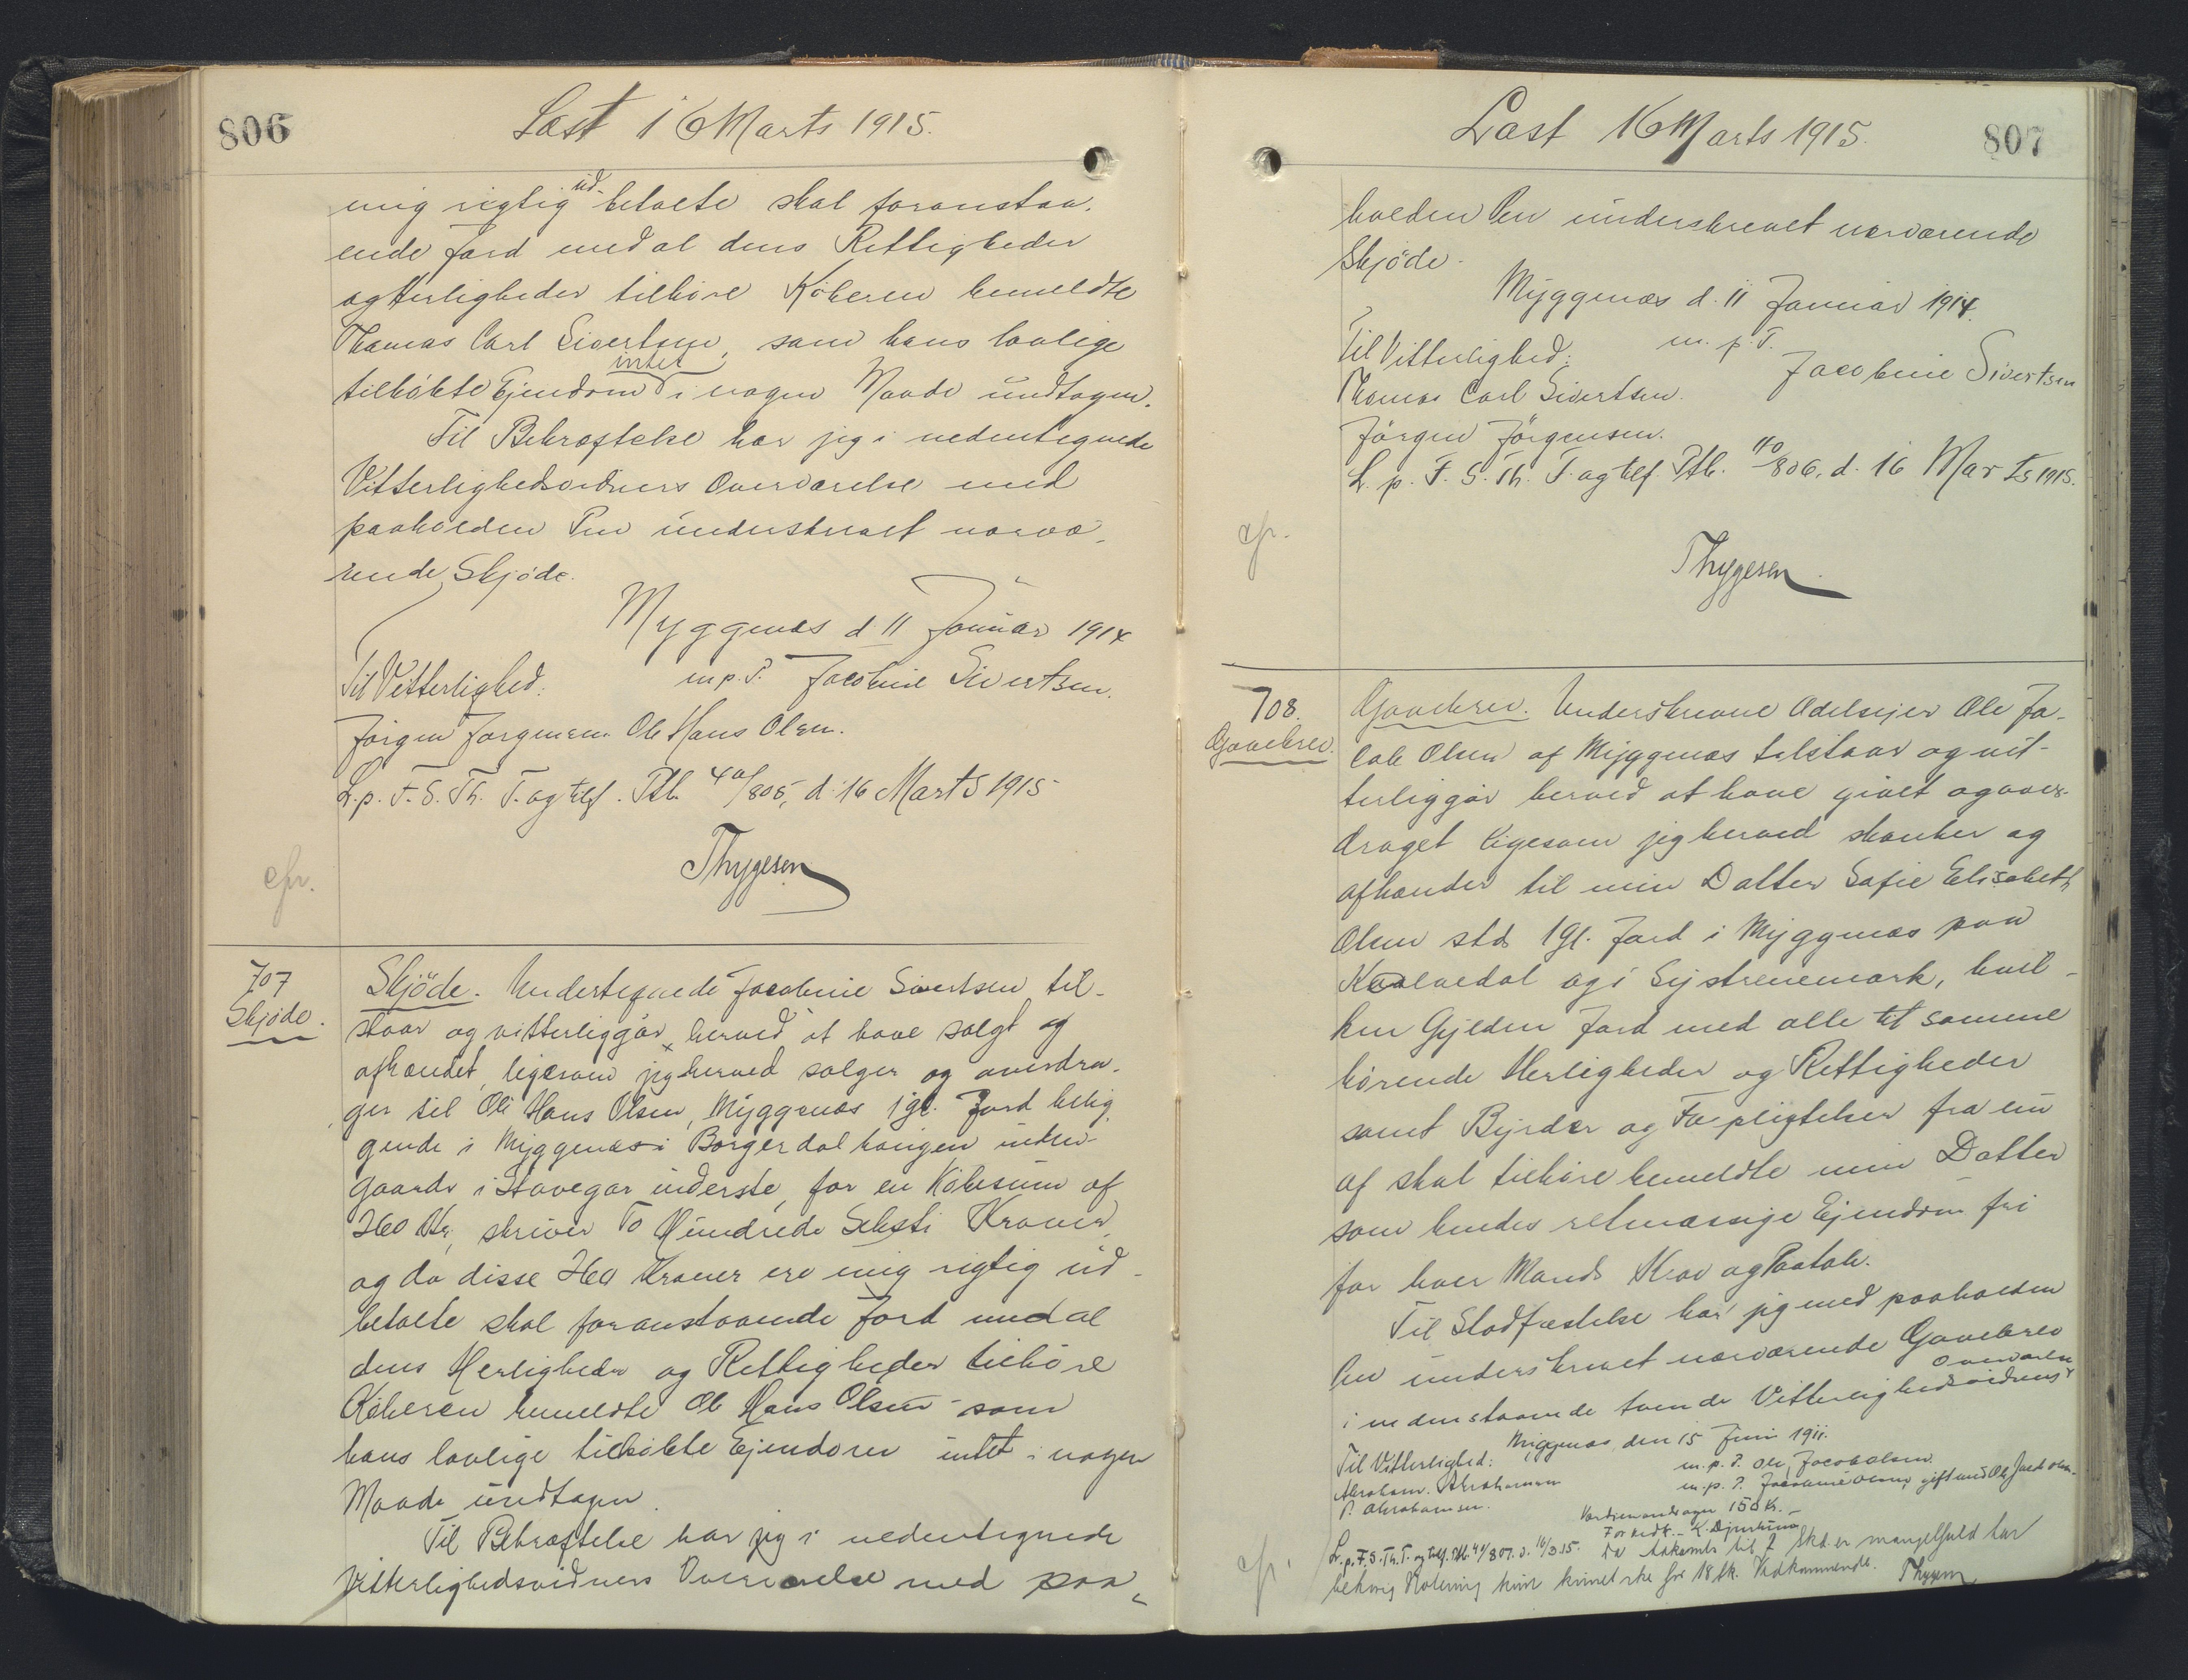 806
Læst 16 Marts 1915.
mig rigtig ud-betalte skal foranstaa-
ende Jord med al dens Rettigheder
og Herligheder tilhöre Köberen bemeldte
Thomas Carl Sivertsen, som hans lovlige
tilköbte Ejendom intet i nogen Maade undtagen.
Til Bekræftelse har jeg i nedentegnede
Vitterlighedsvidners Overværelse med
paaholden Pen underskrevet nærvæ-
rende Skjöde.
Myggenæs d 11 Januar 1914
Til Vitterlighed:
m.p.P. Jacobine Sivertsen.
Jörgen Jörgensen. Ole Hans Olsen.
L.p. F. S. Th. T. og tlf. Ptb. 40/805, d. 16 Marts 1915
Thygesen
cfr.
707
Skjöde.
Skjöde. Undertegnede Jacobine Sivertsen til-
staar og vitterliggör herved at have solgt og
afhændet, ligesom jeg herved sælger og overdra-
ger til Ole Hans Olsen, Myggenæs 1 gl. Jord belig-
gende i Myggenæs i Borgerdal haugen inden-
gaards i Stavegar inderste, for en Köbesum af
260 Kr, skriver To Hundrede Seksti Kroner,
og da disse 260 Kroner ere mig rigtig ud-
betalte skal foranstaaende Jord med al
dens Herligheder og Rettigheder tilhöre
Köberen bemeldte Ole Hans Olsen som
hans lovlige tilköbte Ejendom intet i nogen
Maade undtagen.
Til Bekræftelse har jeg i nedentegnede
Vitterlighedsvidners Overværelse med paa-
Læst 16 Marts 1915.
807
holden Pen underskrevet nærværende
Skjöde.
Myggenæs d. 11 Januar 1914.
Til Vitterlighed:
m. p. P.
Jacobine Sivertsen
Thomas Carl Sivertsen.
Jörgen Jörgensen.
L. p. F. S. Th. T. og tlf. Ptb. 40/806, d. 16 Marts 1915.
cfr.
Thygesen
708.
Gavebrev.
Gavebrev. Underskrevne Odelsejer Ole Ja-
cob Olsen af Myggenæs tilstaar og vit-
terliggör herved at have givet og over-
draget ligesom jeg herved skænker og
afhænder til min Datter Sofie Elisabeth
Olsen stds 1 Gl. Jord i Myggenæs paa
Kvalvedal og i Systrenemark, hvil-
ken Gylden Jord med alle til samme
hörende Herligheder og Rettigheder
samt Byrder og Forpligtelser fra nu
af skal tilhöre bemeldte min Datter
som hendes retmæssige Ejendom fri
for hver Mands Krav og Paatale.
Til Stadfæstelse har jeg med paaholden
Pen underskrevet nærværende Gavebrev
i nedenstaaende tvende Vitterlighedsvidners Overværelse
Myggenæs, den 15 Juni 1911.
Til Vitterlighed:
m. p. P. Ole Jacob Olsen
Abraham Abrahamsen
m. p. P. Jacobine Olsen, gift med Ole Jacob Olsen.
P. Abrahamsen.
Værdien andrager 150 Kr.
L. p. F. S. Th. T. og tlf. Ptb. 41/807. d. 16/3 15. Da Adkomst til Skd. er mangelfuld har
behørig Notering kun kunnet ske for 18 Sk. Vedkommende. Thygesen
cfr.